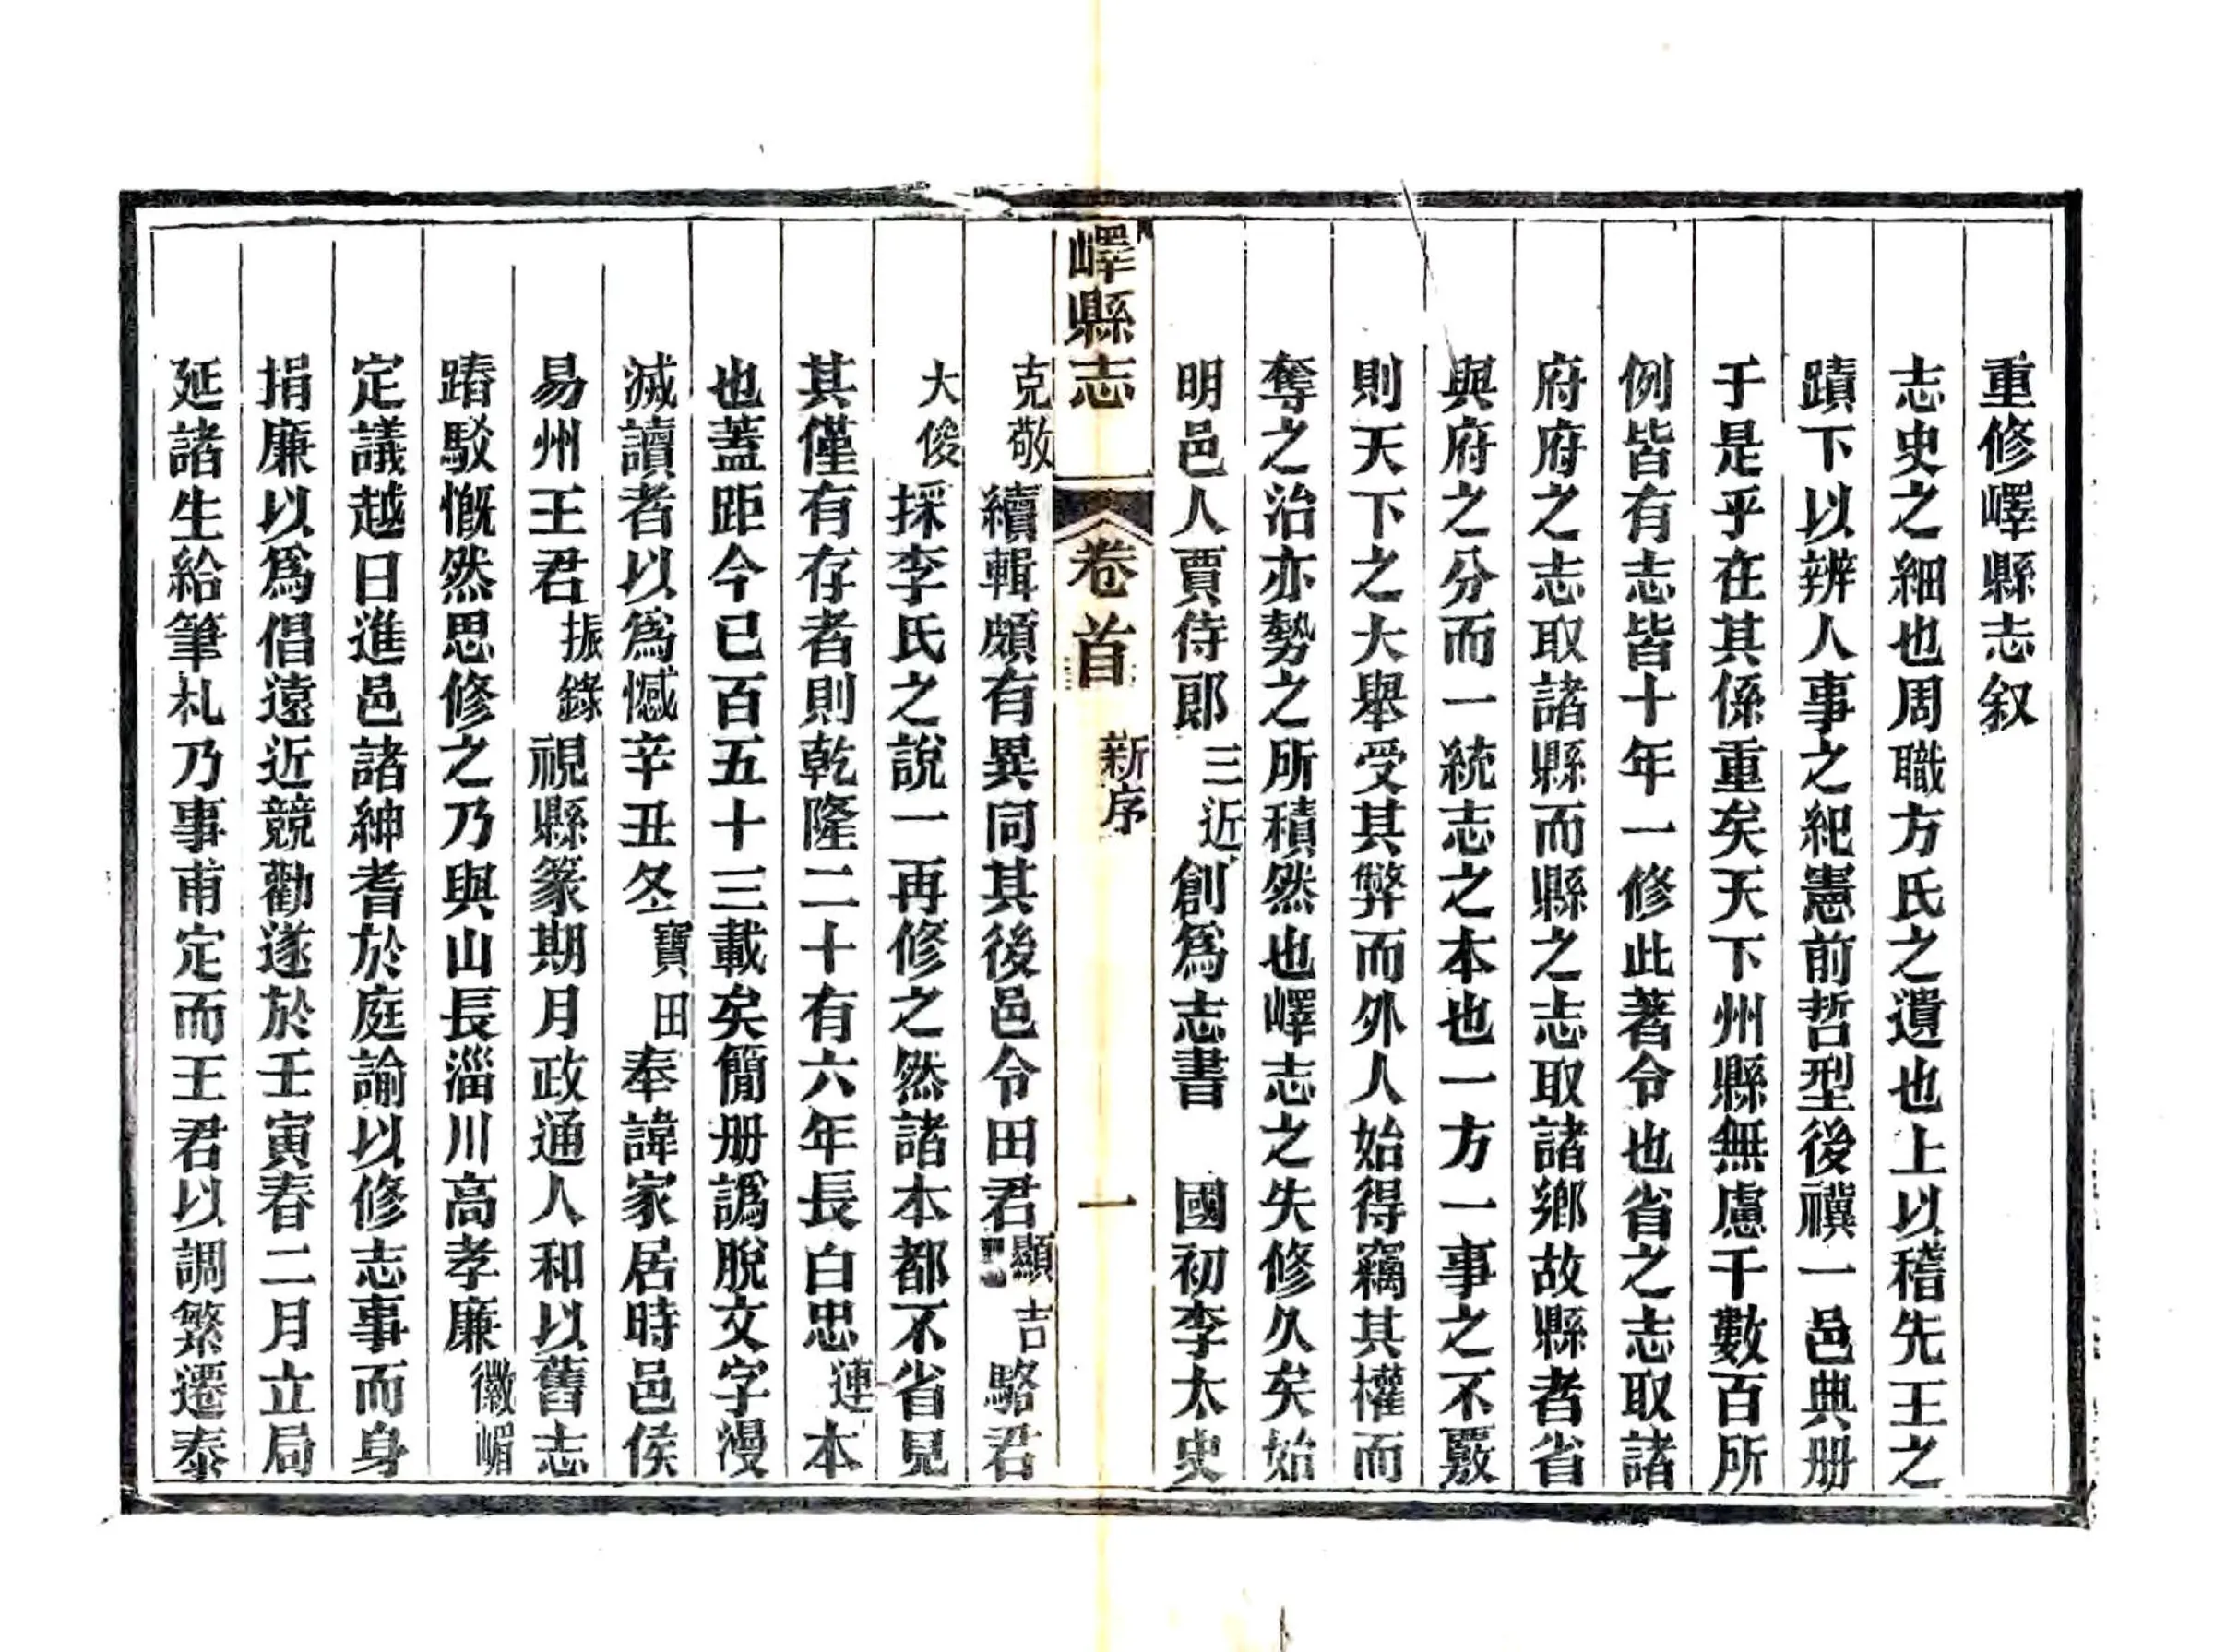 重修嶧縣志叙
志史之細也周職方氏之遺也上以稽先王之
蹟下以辨人事之紀憲前哲型後禩一邑典册
于是乎在其係重矣天下州縣無慮千數百所
例皆有志皆十年一修此著令也省之志取諸
府府之志取諸縣而縣之志取諸鄉故縣者省
與府之分而一統志之本也一方一事之不覈
則天下之大舉受其弊而外人始得竊其權而
奪之治亦勢之所積然也嶧志之失修久矣始
明邑人賈侍郎三近創爲志書 國初李太史
嶧縣志 卷首 新序 一
克敬續輯頗有異同其後邑令田君顯吉駱君
大俊採李氏之說一再修之然諸本都不省見
其僅有存者則乾隆二十有六年長白忠璉本
也蓋距今已百五十三載矣簡册譌脫文字漫
滅讀者以爲憾辛丑冬寶田奉諱家居時邑侯
易州王君振錄視縣篆期月政通人和以舊志
踳駁慨然思修之乃與山長淄川高孝廉徽嵋
定議越日進邑諸紳耆於庭諭以修志事而身
捐廉以爲倡遠近競勸遂於壬寅春二月立局
延諸生給筆札乃事甫定而王君以調繁遷泰